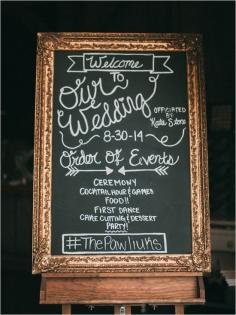 Welcome
TO
Our
Wedding
OFFICIATED
BY
Kate Stone
8-30-14
Order OF Events
CEREMONY
COCKTAIL HOUR & GAMES
FOOD!!
FIRST DANCE
CAKE CUTTING & DESSERT
PARTY!
#ThePawliuks